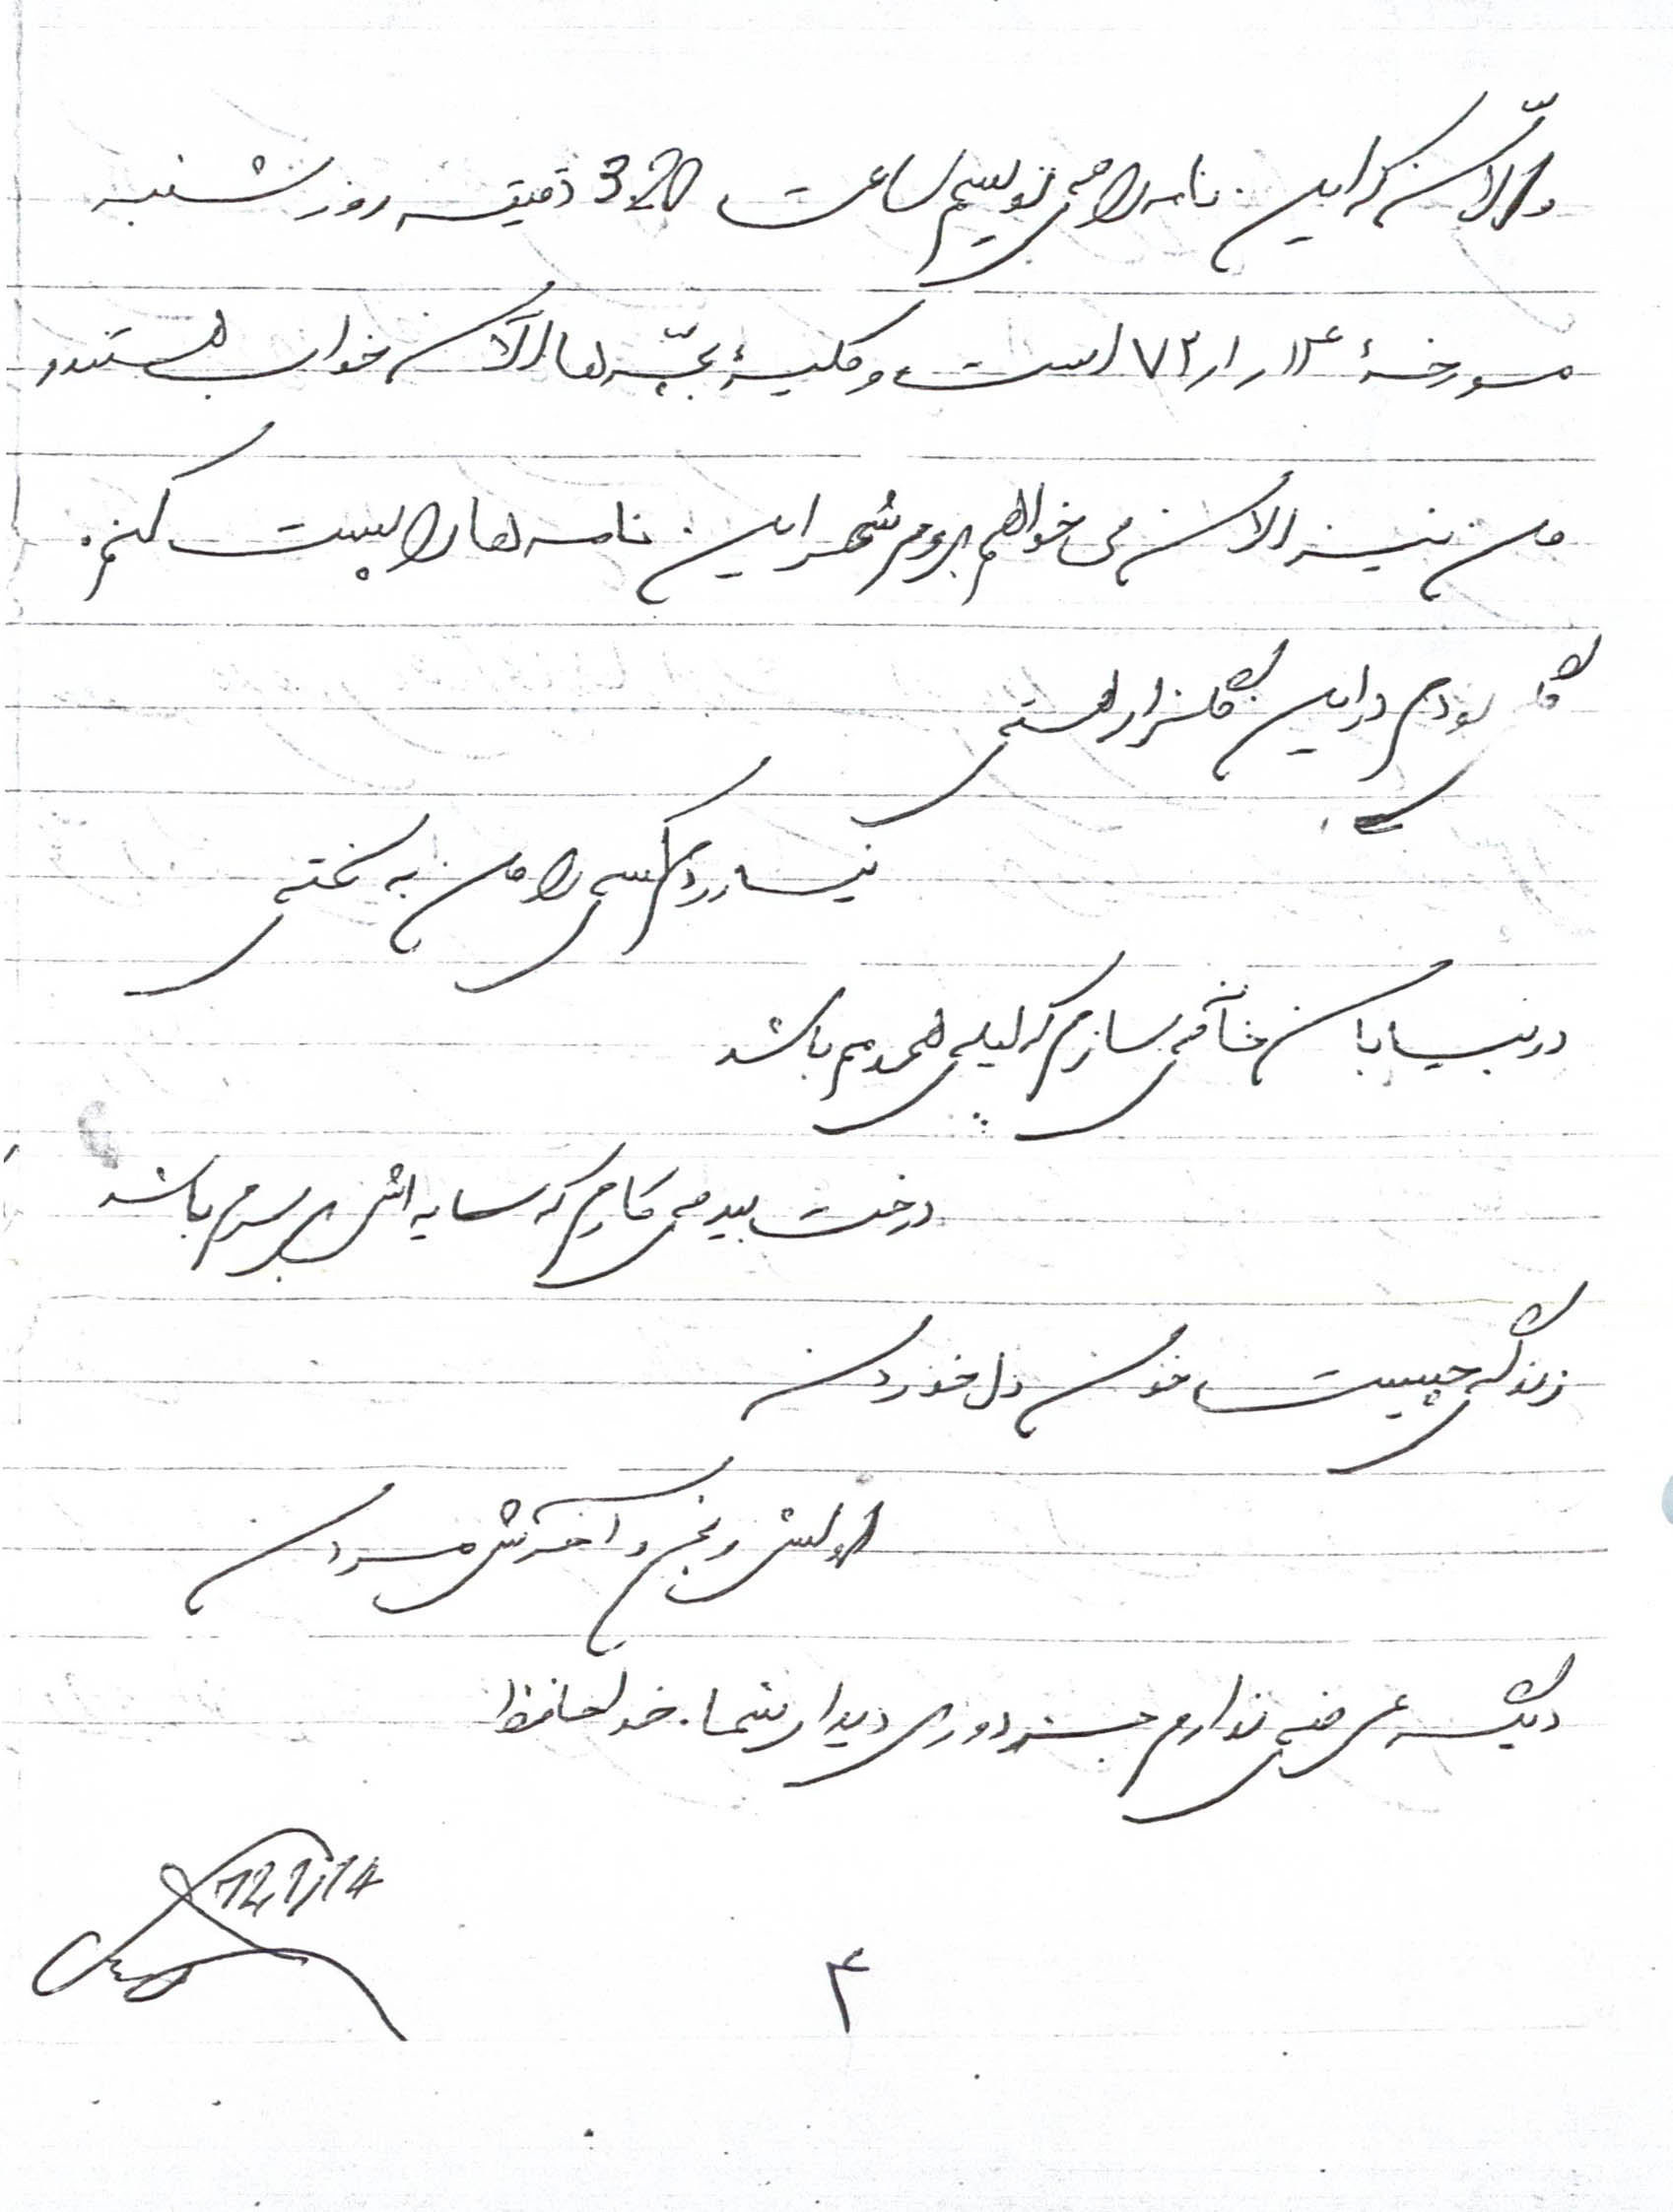 والّان که این نامه را می نویسم ساعت 3:20 دقیقه روز شنبه
مورخهٔ ۱۴ر۱ر۷۲ است و کلیهٔ بچّه ها الآن خواب هستند و
من نیز الان می خواهم بروم شهر این نامه ها را پست کنم.
گلی بودم در این گلزار هستی
نیازردم کسی را من به سختی
در بیابان خانه می سازم که لیلی همدمم باشد
درخت بید می کارم که سایه اش بر سرم باشد
زندگی چیست خون دل خوردن
اولش رنج و آخرش مردن
دیگر عرضی ندارم جز دوری دیدار شما. خداحافظ
72/1/14
۴